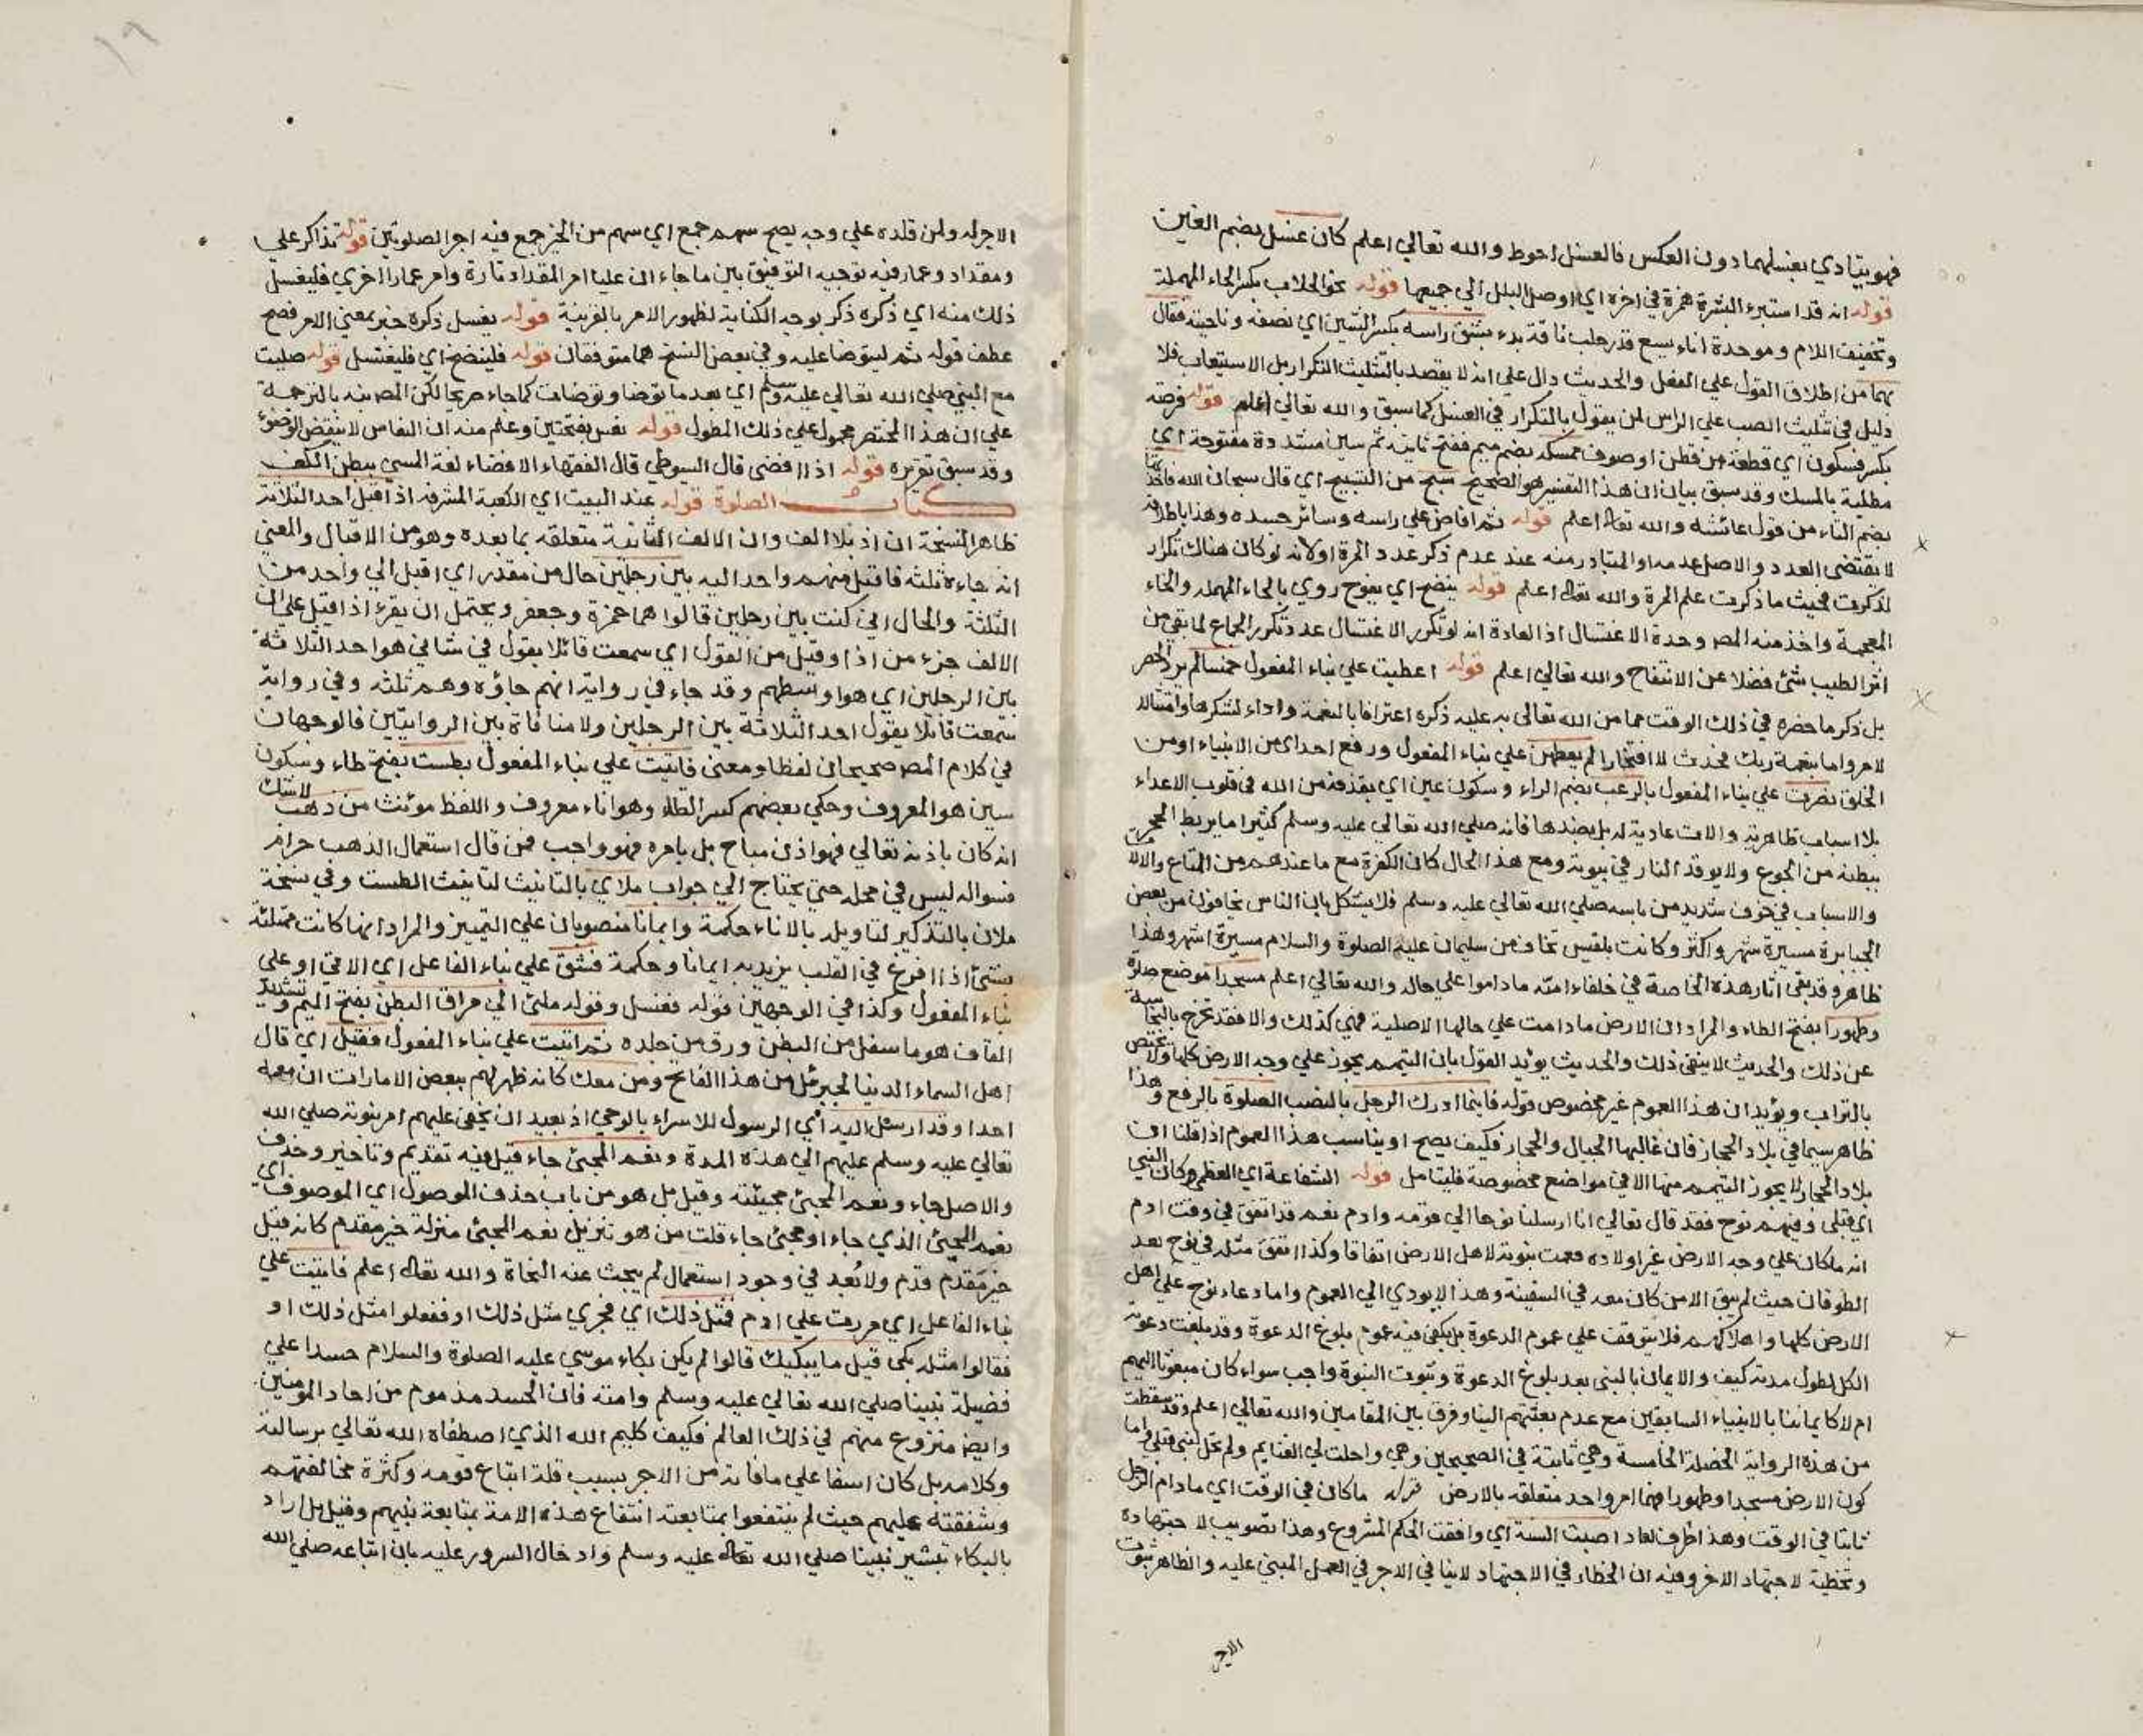 فهو يتادي بغسلهما دون العكس فالغسل احوط والله تعالي اعلم كان غسل بضم الغين
قوله انه قد استبرء البشرة همزة في اخره اي اوصل البلل الي جميعها قوله نحو الحلاب بكسر الحاء المهملة
وتخفيف اللام وموحدة اناء يسع قدر حلب ناقة بدء بشق راسه بكسر الشين اي نصفه وناحيته فقال
بهما من اطلاق القول علي الفعل والحديث دال علي انه لا يقصد بالتثليث التكرار بل الاستيعاب فلا
دليل في تثليث الصب علي الراس لمن يقول بالتكرار في الغسل كما سبق والله تعالي اعلم قوله فرصة
بكسر فسكون اي قطعة من قطن او صوف ممسكه بضم ميم ففتح ثانيه ثم سين مشددة مفتوحة اي
مطلية بالمسك وقد سبق بيان ان هذا التفسير هو الصحيح سبح من التسبيح اي قال سبحان الله فاخذتها
بضم التاء من قول عائشه والله تعالى اعلم قوله ثم افاض علي راسه وسائر جسده وهذا باطلاقه
لا يقتضي العدد والاصل عدمه او المتبادر منه عند عدم ذكر عدد المرة اولانه لو كان هناك تكرار
لذكرت فحيث ما ذكرت علم المرة والله تعالى اعلم قوله ينضح اي يفوح روي بالحاء المهمله والخاء
المعجمة واخذ منه المص وحدة الاغتسال اذ العادة انه لو تكرر الاغتسال عدد تكرر الجماع لما بقي من
اثر الطيب شئ فضلا عن الانتفاح والله تعالي اعلم قوله اعطيت علي بناء المفعول خمسا لم يرد الحصر
بل ذكر ما حضره في ذلك الوقت مما من الله تعالى به عليه ذكره اعترافا بالنعمة واداء لشكرها وامتثالا
لامر واما بنعمة ربك فحدث لا افتخارا لم يعطهن علي بناء المفعول ورفع احد اي من الانبياء او من
الخلق نصرت علي بناء المفعول بالرعب بضم الراء وسكون عين اي بقذفه من الله في قلوب الاعداء
بلا اسباب ظاهرية والات عادية له بل بضدها فانه صلي الله تعالي عليه وسلم كثيرا ما يربط الحجر
ببطنه من الجوع ولا يوقد النار في بيوته ومع هذا الحال كان الكفرة مع ما عندهم من المتاع والالات
والاسباب في خوف شديد من باسه صلي الله تعالي عليه وسلم فلا يشكل بان الناس يخافون من بعض
الجبابرة مسيرة شهر واكثر وكانت بلقيس تخاف من سليمان عليه الصلوة والسلام مسيرة اشهر وهذا
ظاهر وقد بقي اثار هذه الخاصة في خلفاء امته ما داموا علي حاله والله تعالي اعلم مسجدا موضع صلاة
وطهورا بفتح الطاء والمراد ان الارض ما دامت علي حالها الاصلية فهي كذلك والا فقد تخرج بالنجاسة
عن ذلك والحديث لا ينفي ذلك والحديث يؤيد القول بان التيمم يجوز علي وجه الارض كلها ولا يختص
بالتراب ويؤيد ان هذا العموم غير مخصوص قوله فاينما ادرك الرجل بالنصب الصلوة بالرفع وهذا
ظاهر سيما في بلاد الحجاز فان غالبها الجبال والحجار فكيف يصح او يناسب هذا العموم اذا قلنا ان
بلاد الحجاز لا يجوز التيمم منها الا في مواضع مخصوصة فليتامل قوله الشفاعة اي العظمي وكان النبي
اي قبلي وفيهم نوح فقد قال تعالي انا ارسلنا نوحا الي قومه وادم نعم قد اتفق في وقت ادم
انه ما كان علي وجه الارض غير اولاده فعمت نبوته لاهل الارض اتفاقا وكذا اتفق مثله في نوح بعد
الطوفان حيث لم يبق الا من كان معه في السفينة وهذا لا يودي الي العموم واما دعاء نوح علي اهل
الارض كلها واهلاكهم فلا يتوقف علي عموم الدعوة بل يكفي فيه عموم بلوغ الدعوة وقد بلغت دعوته
الكل لطول مدته كيف والايمان بالنبي بعد بلوغ الدعوة وثبوت النبوة واجب سواء كان مبعوثا اليهم
ام لا كايماننا بالانبياء السابقين مع عدم بعثتهم الينا وفرق بين المقامين والله تعالي اعلم وقد سقطت
من هذه الرواية الخصلة الخامسة وهي ثابتة في الصحيحين وهي واحلت لي الغنايم ولم تحل لنبي قبلي واما
كون الارض مسجدا وطهورا فهما امر واحد متعلقه بالارض قوله ما كان في الوقت اي ما دام الرجل
ثابتا في الوقت وهذا ظرف لعاد اصبت السنة اي وافقت الحكم المشروع وهذا تصويب لاجتهاده
وتخطية لاجتهاد الاخر وفيه ان الخطاء في الاجتهاد لا ينافي الاجر في العمل المبني عليه والظاهر ثبوت
الاجر
الاجر له ولمن قلده علي وجه يصح سهم جمع اي سهم من الخير جمع فيه اجر الصلوتين قوله تذاكر علي
ومقداد وعمار فيه توجيه التوفيق بين ما جاء ان عليا امر المقداد تارة وامر عمارا اخري فليغسل
ذلك منه اي ذكره ذكر بوجه الكناية لظهور الامر بالقرينة قوله يغسل ذكره خبر بمعني الامر فصح
عطف قوله ثم ليتوضا عليه وفي بعض النسخ هما متوفقان قوله فلينضح اي فليغتسل قوله صليت
مع النبي صلي الله تعالي عليه وسلم اي بعد ما توضا وتوضات كما جاء صريحا لكن المص نبه بالترجمة
علي ان هذا المختصر محمول علي ذلك المطول قوله نفس بفتحتين وعلم منه ان النفاس لا ينقض الوضوء
وقد سبق تقريره قوله اذا افضي قال السيوطي قال الفقهاء الافضاء لغة المس ببطن الكف
كتاب الصلوة قوله عند البيت اي الكعبة المشرفه اذ اقبل احد الثلاثة
ظاهر النسخة ان اذ بلا الف وان الالف الثانية متعلقه بما بعده وهو من الاقبال والمعني
انه جاءه ثلثه فاقبل منهم واحد اليه بين رجلين حال من مقدر اي اقبل الي واحد من
الثلثة والحال اني كنت بين رجلين قالوا هما حمزة وجعفر ويحتمل ان يقرء اذا قيل علي ان
الالف جزء من اذا وقيل من القول اي سمعت قائلا يقول في شاني هو احد الثلاثة
بين الرجلين اي هو اوسطهم وقد جاء في رواية انهم جاؤه وهم ثلثه وفي رواية
سمعت قائلا يقول احد الثلاثة بين الرجلين ولا منافاة بين الروايتين فالوجهان
في كلام المص صحيحان لفظا ومعني فاتيت علي بناء المفعول بطست بفتح طاء وسكون
سين هو المعروف وحكي بعضهم كسر الطاء وهو اناء معروف واللفظ موئنث من ذهب لا شك
انه كان باذنه تعالي فهو اذن مباح بل بامره فهو واجب فمن قال استعمال الذهب حرام
فسواله ليس في محله حتي يحتاج الي جواب ملاي بالتانيث لتانيث الطست وفي نسخة
ملان بالتذكير لتاويله بالاناء حكمة وايمانا منصوبان علي التمييز والمراد انها كانت ممتلئة
بشئ اذا افرغ في القلب يزيد به ايمانا وحكمة فشق علي بناء الفاعل اي الاتي او علي
بناء المفعول وكذا في الوجهين قوله فغسل وقوله ملئ الي مراق البطن بفتح الميم وتشديد
القاف هو ما سفل من البطن ورق من جلده ثم اتيت علي بناء المفعول فقيل اي قال
اهل السماء الدنيا لجبرئيل من هذا الفاتح ومن معك كانه ظهر لهم ببعض الامارات ان معه
احدا وقد ارسل اليه اي الرسول للاسراء بالوحي اذ بعيد ان يخفي عليهم امر نبوته صلي الله
تعالي عليه وسلم عليهم الي هذه المدة ونعم المجئ جاء قيل فيه تقديم وتاخير وحذف
والاصل جاء ونعم المجئ مجيئته وقيل بل هو من باب حذف الموصول اي الموصوف اي
نعم المجئ الذي جاء او مجئ جاء قلت من هو تنزيل نعم المجئ منزله خير مقدم كانه قيل
خير مقدم قدم ولا بُعد في وجود استعمال لم يبحث عنه النحاة والله تعالى اعلم فاتيت علي
بناء الفاعل اي مررت علي ادم فمثل ذلك اي فجري مثل ذلك او ففعلوا مثل ذلك او
فقالوا مثله بكي قيل ما يبكيك قالوا لم يكن بكاء موسي عليه الصلوة والسلام حسدا علي
فضيلة نبينا صلي الله تعالي عليه وسلم وامته فان الحسد مذموم من احاد المومنين
وايضا منزوع منهم في ذلك العالم فكيف كليم الله الذي اصطفاه الله تعالي برسالته
وكلامه بل كان اسفا علي ما فاته من الاجر بسبب قلة اتباع قومه وكثرة مخالفتهم
وشفقته عليهم حيث لم ينتفعوا بمتابعته انتفاع هذه الامة بمتابعة نبيهم وقيل بل اراد
بالبكاء تبشير نبينا صلي الله تعالى عليه وسلم وادخال السرور عليه بان اتباعه صلي الله